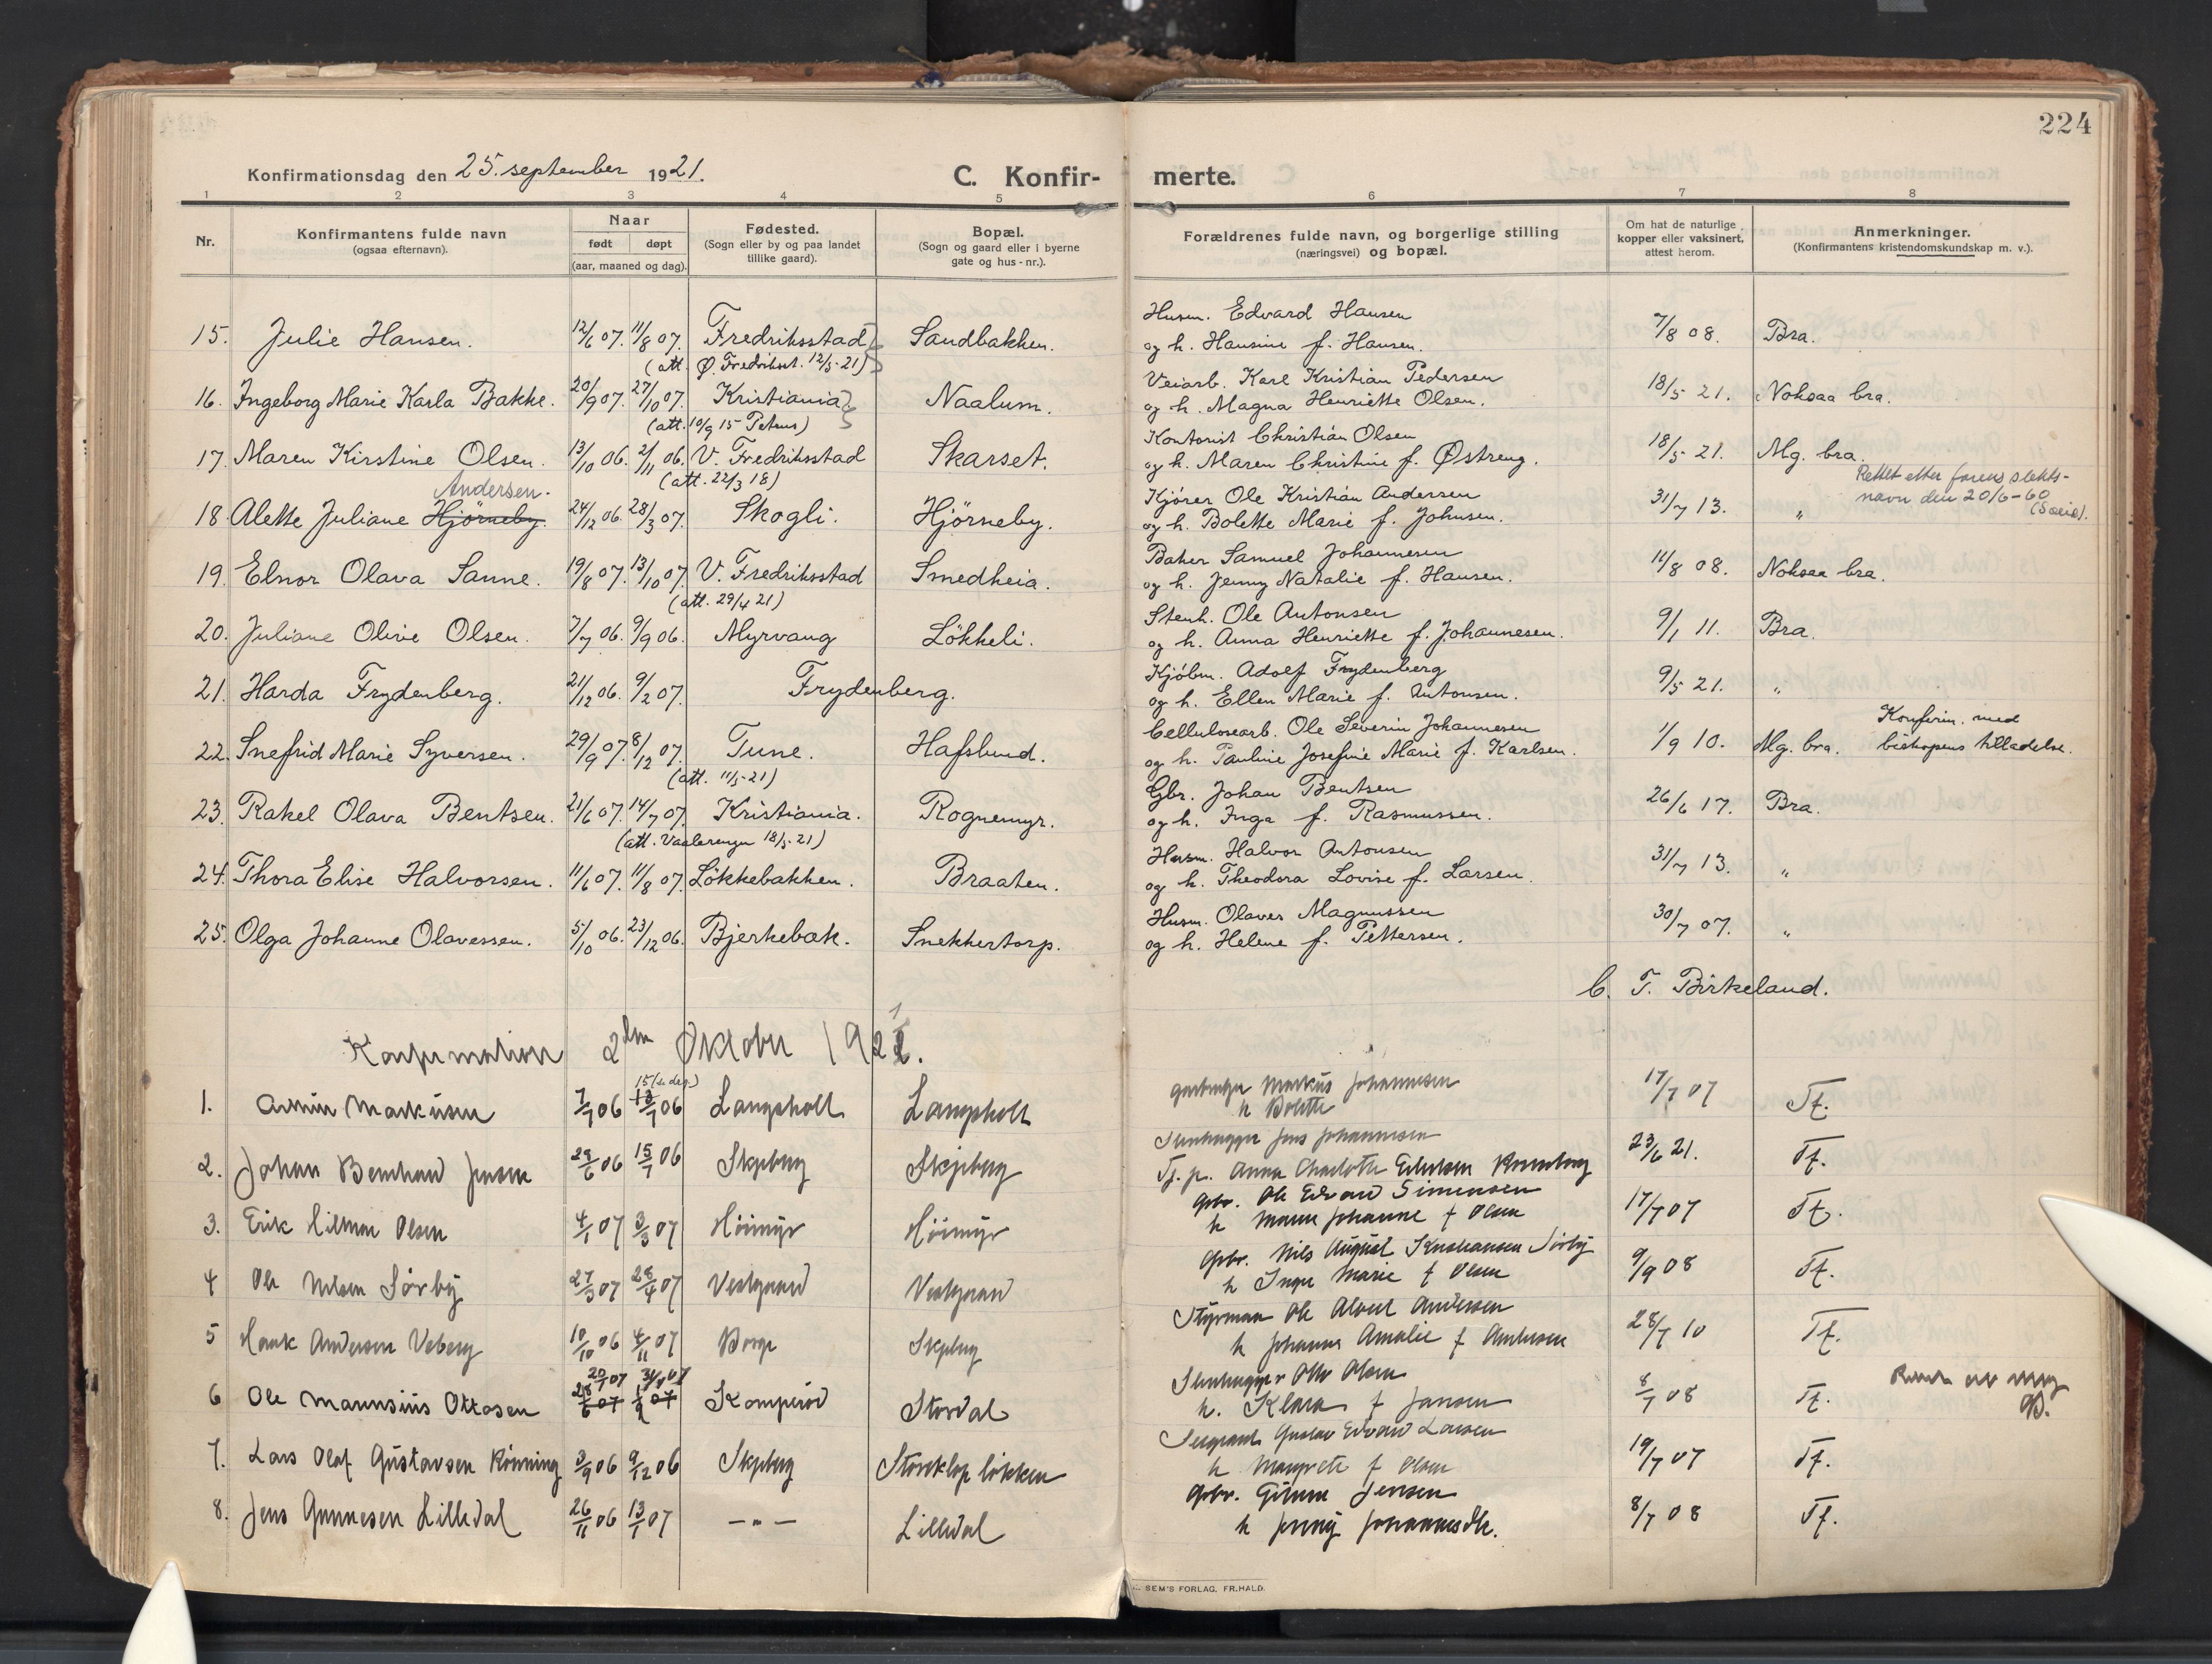 224
Konfirmationsdag den 25. september 1921. C. Konfir- merte.
1 2 3 4 5 6 7 8
Nr. Konfirmantens fulde navn (ogsaa efternavn). Naar født døpt (aar, maaned og dag). Fødested. (Sogn eller by og paa landet tillike gaard). Bopæl. (Sogn og gaard eller i byerne gate og hus-nr.). Forældrenes fulde navn, og borgerlige stilling (næringsvei) og bopæl. Om hat de naturlige kopper eller vaksinert, attest herom. Anmerkninger. (Konfirmantens kristendomskundskap m. v.).
15. Julie Hansen. 12/6 07. 11/8 07. Fredriksstad Sandbakken. Husm. Edvard Hansen 7/8 08. Bra.
(att. Ø. Fredrikst. 12/5-21) og h. Hansine f. Hansen.
16. Ingeborg Marie Karla Bakke. 20/9 07. 27/10 07. Kristiania Naalum. Veiarb. Karl Kristian Pedersen 18/5 21. Noksaa bra.
(att. 10/9 15 Petrus) og h. Magna Henriette Olsen.
17. Maren Kirstine Olsen. 13/10 06. 2/11 06. V. Fredriksstad Skarset. Kontorist Christian Olsen 18/5 21. Mg. bra.
(att. 22/3 18) og h. Maren Christine f. Østreng.
Andersen. Rettet etter farens slekts-
18. Alette Juliane Hjörneby. 24/12 06. 28/3 07. Skogli. Hjörneby. Kjörer Ole Kristian Andersen 31/7 13. " navn den 20/6-60
og h. Bolette Marie f. Johnsen.
19. Elnor Olava Sanne. 19/8 07. 13/10 07. V. Fredriksstad Smedheia. Baker Samuel Johannesen 11/8 08. Noksaa bra.
(att. 29/4 21) og h. Jenny Natalie f. Hansen.
20. Juliane Olivie Olsen. 7/7 06. 9/9 06. Myrvang Lökkeli. Stenh. Ole Antonsen 9/1 11. Bra.
og h. Anna Henriette f. Johannesen.
21. Harda Frydenberg. 21/12 06. 9/2 07. Frydenberg. Kjöbm. Adolf Frydenberg 9/5 21. "
og h. Ellen Marie f. Antonsen.
22. Snefrid Marie Syversen. 29/9 07. 8/12 07. Tune. Hafslund. Cellulosearb. Ole Severin Johannesen 1/9 10. Mg. bra. Konfirm. med biskopens tilladelse.
(att. 11/5-21) og h. Pauline Josefine Marie f. Karlsen.
23. Rakel Olava Bentsen. 21/6 07. 14/7 07. Kristiania. Rognemyr. Gbr. Johan Bentsen 26/6 17. Bra.
(att. Vaalerengen 18/5-21) og h. Inga f. Rasmussen.
24. Thora Elise Halvorsen. 11/6 07. 11/8 07. Lökkebakken. Braaten. Husm. Halvor Antonsen 31/7 13. "
og h. Theodora Lovise f. Larsen.
25. Olga Johanne Olavessen. 5/10 06. 23/12 06. Bjerkebæk. Snekkertorp. Husm. Olaves Magnussen 30/7 07. "
og h. Helene f. Pettersen.
C. T. Birkeland.
Konfirmation 2den Oktober 1921.
1. Armin Markusen 7/7 06 15/7 06 Langsholt Langsholt Markus Johannesen 17/7 07 Tf.
h Bolette
2. Johan Bernhard Jensen 29/6 06 15/7 06 Skjeberg Skjeberg Stenhugger Jens Johannesen 23/6 21. Tf.
Tj. p. Anna Charlotte
3. Erik Hilmar Olsen 4/1 07 3/3 07 Höimyr Höimyr Gbr. Ole Edvard Simensen 17/7 07 Tf.
h Maren Johanne f Olsen
4 Ole Nilsen Sörby 27/3 07 28/4 07 Vestgaard Vestgaard Gbr. Nils August Kristiansen Sörby 9/9 08 Tf.
h Inga Marie f Olsen
5 Hauk Andersen Veberg 10/10 06 4/11 07 Borge Skjeberg Styrman Ole Albert Andersen 28/7 10 Tf.
h Johanne Amalie f Andersen
6 Ole Mannsius Ottosen 28/6 07 Komperöd Stordal Stenhugger Otto Olsen 8/7 08 Tf.
h. Klara f Jansen
7. Lars Olaf Gustavsen Rönning 3/9 06 9/12 06 Skjeberg Storeklop lökken Sergeant Gustav Edvard Larsen 19/7 07 Tf.
h Margrete f Olsen
8. Jens Gunnesen Lilledal 26/11 06 13/1 07 — " — Lilledal Gbr. Gunne Jensen 8/7 08 Tf.
h Jenny Johannesdtr.
SEM'S FORLAG, FR.HALD.